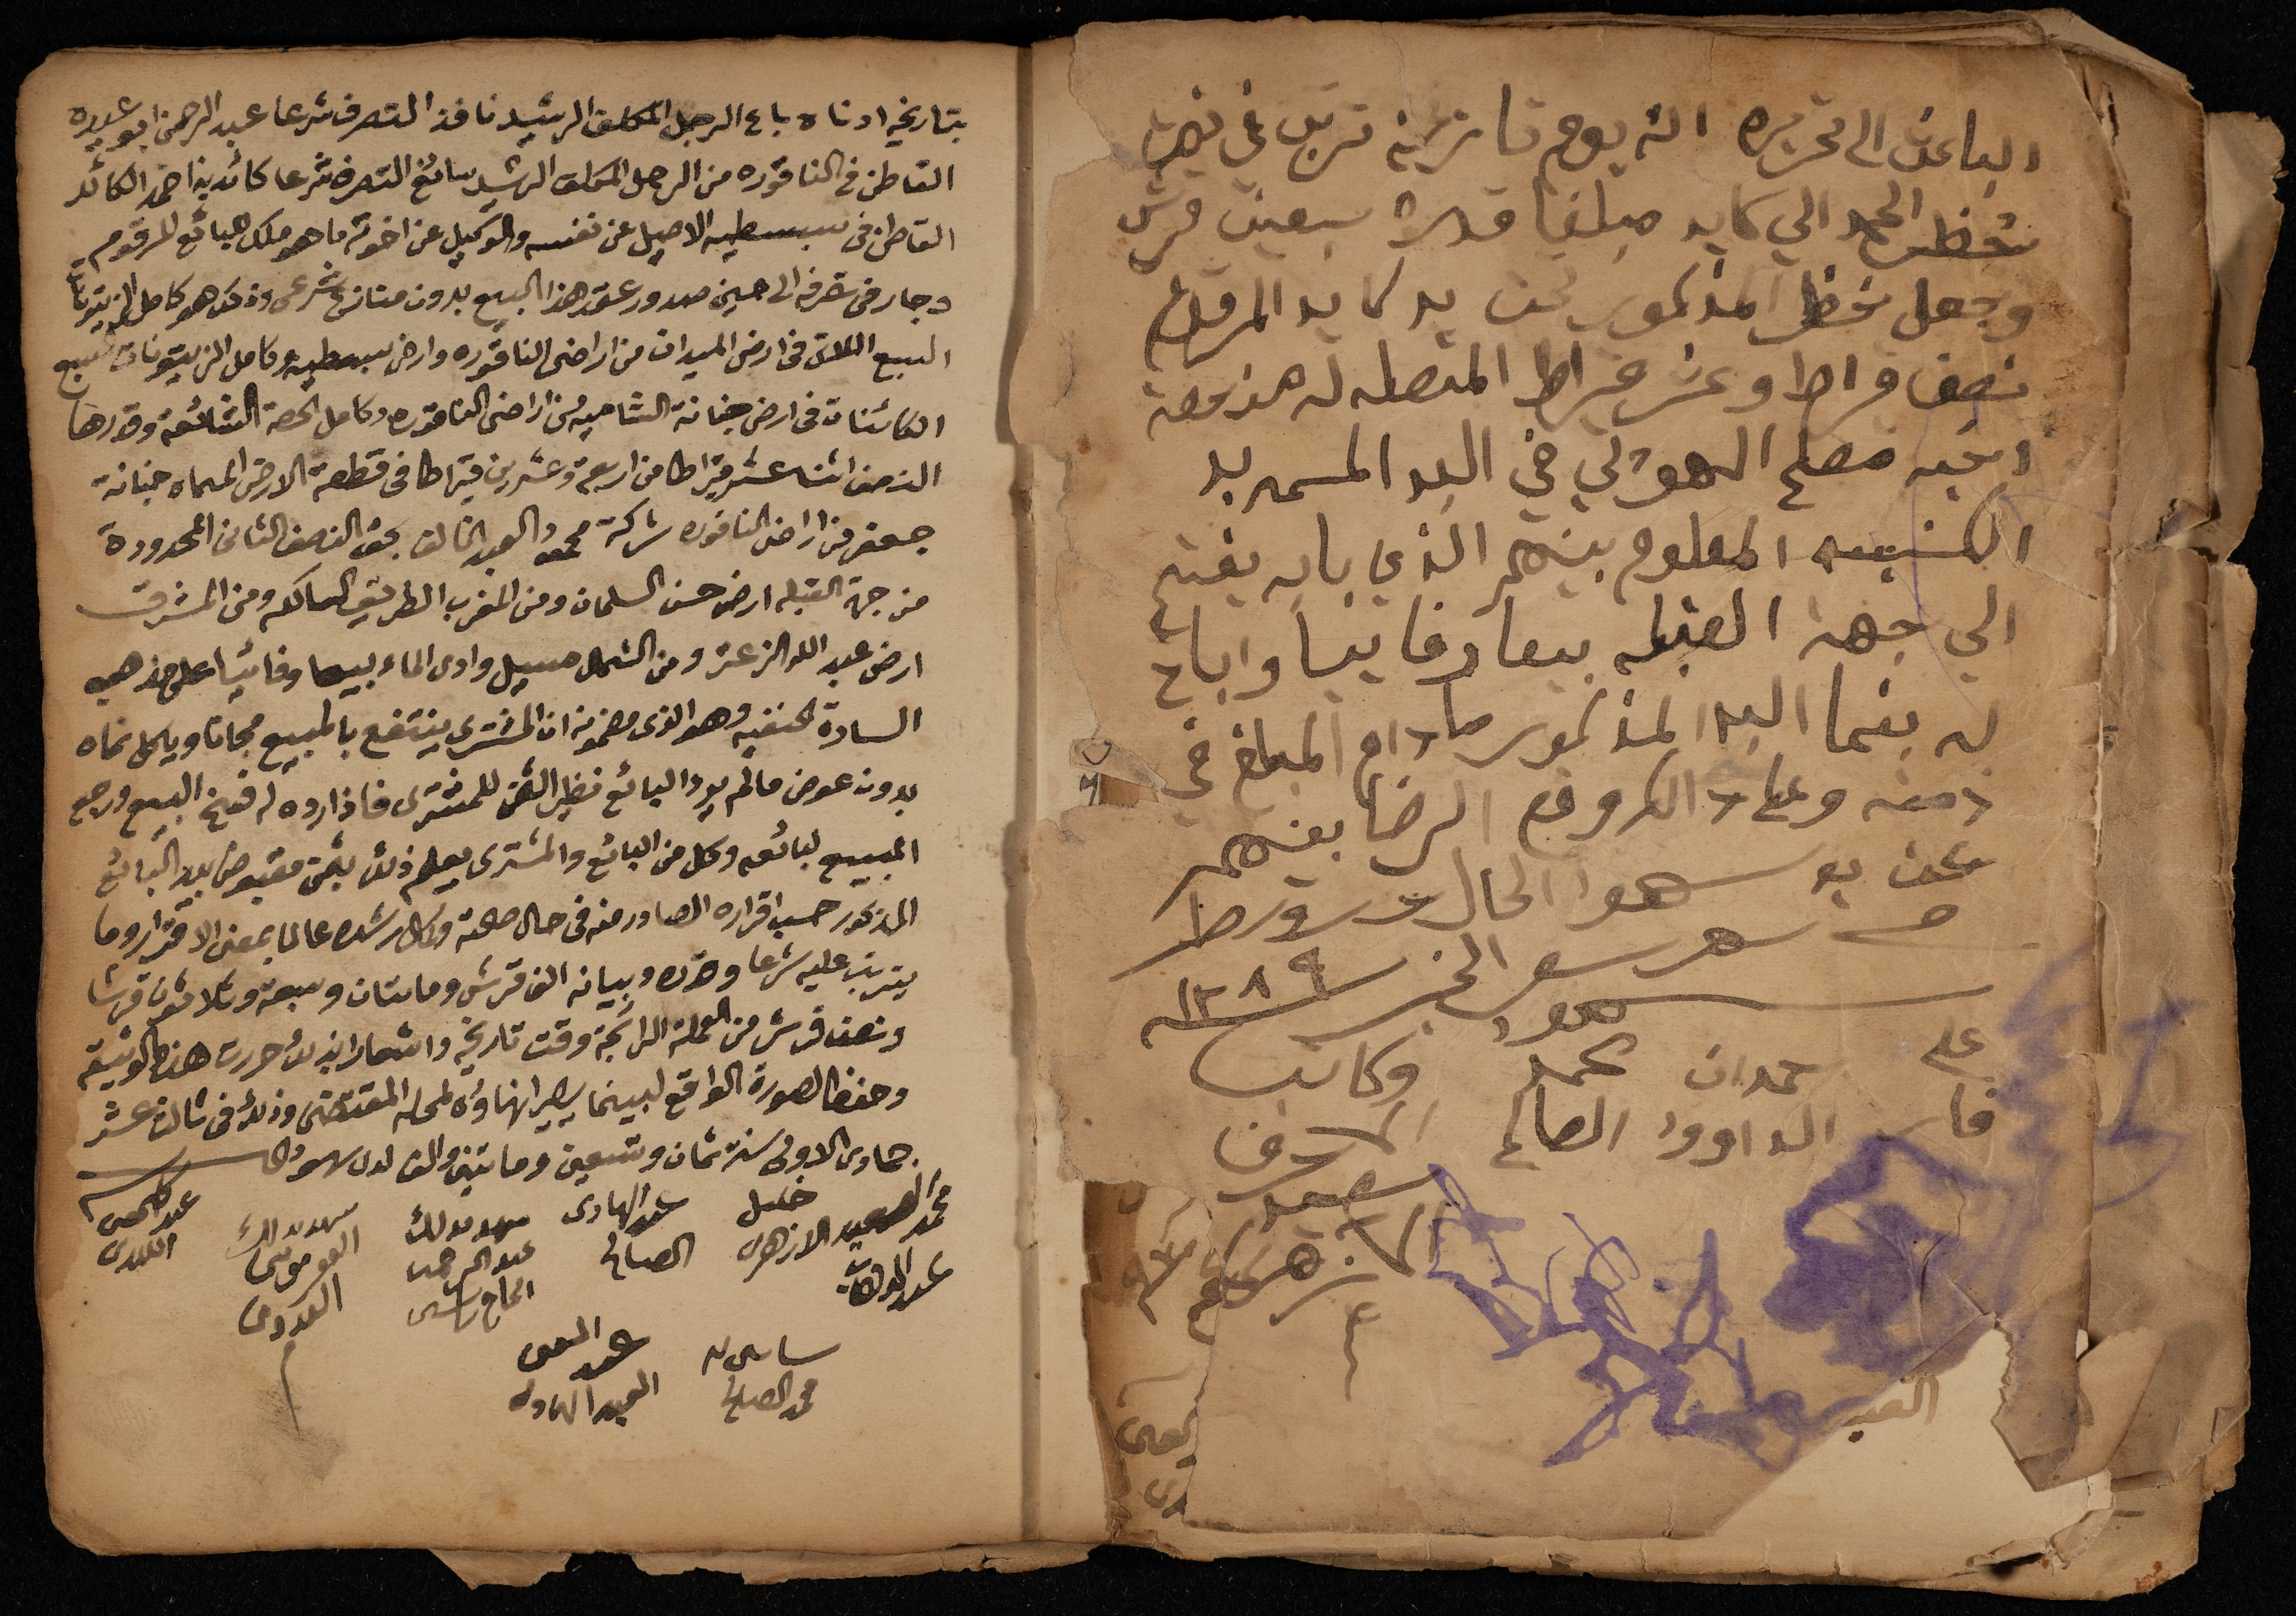 الباعث الى تحريره انه يوم تاريخه ترتب في ذمة
خظر الحمد الي كايد مبلغا قدره سبعين قرش
وجعل خظر المذكور تحت يد كايد المرقوم
نصف قراط وعشر قيراط المتصله له من
ابيه مصلح في البد المسمى بد
الكنيسه المعلوم بينهم الذي بابه يفتح
الي جهة القبله بيعا وفاييا واباح
له بنما البد المذكور ما دام المبلغ في
ذمته وعلا ذالك وقع الرضا بينهم
سهوا الحال
شهر الخير
١٢٨٩
على حمدان محمد وكاتب
فارس الداوود الصالح الاحرف
سعيد
الازهري
بتاريخه ادناه باع الرجل المكلف الرشيد نافذ التصرف شرعا عبد الرحمن ابو عبيده
القاطن في الناقوره من الرجل المكلف الرشيد سائغ التصرف شرعا كائد بن احمد الكائد
القاطن في سبسطيه الاصيل عن نفسه والوكيل عن اخوته ما هو ملك البائع المرقوم
وجار في تصرفه الى حين صدور عقد هذا البيع بدون منازع شرعي وذلك هو كامل الزيتونات
السبع اللات في ارض الميدان من اراضي الناقوره وارض سبسطيه وكامل الزيتونات السبع
الكائنات في ارض جنانة الشاميه من اراضي الناقوره وكامل الحصة الشائعة وقدرها
النصف اثنا عشر قيراطا من اربعة وعشرين قيراطا في قطعة الارض المسماه جنانة
جعفر من اراضي الناقوره شركة محمود العبد الخالق بحق النصف الثاني المحدودة
من جهة القبله ارض حسن السلمان ومن المغرب الطريق السالكه ومن المشرق
ارض عبد الله الزعتر ومن الشمال مسيل وادي الماء بيعا وفائيا على مذهب
السادة الحنفيه وهو الذي مضمونه ان المشتري ينتفع بالمبيع مجانا وياكل نماه
بدون عوض ما لم يرد البائع نظير الثمن للمشتري فاذا رده له فسخ البيع ورجع
المبيع لبائعه وكل من البائع والمشتري يعلم ذلك بثمن مقبوض بيد البائع
المذكور حسب اقراره الصادر منه في حال صحته وكمال رشده عالما بمعنى الاقرار وما
يترتب عليه شرعا وقدره وبيانه الف قرش وماىتان وسبعة وثلاثون قرشا
ونصف قرش من العملة الرائجة وقت تاريخه واشعارا بذلك حررت هذه الوثيقة
وحفظا لصورة الواقع لبينما يصير انهاؤه لمحله المقتضى وذلك في ثالث عشر
جمادى الاولى سنة ثمان وتسعين ومائتين والف لدى شهود الحال
محمد السعيد الازهري خليل عبد الهادي الصالح شهد بذلك عبد الرحمن الحاج شهد بذلك ابو موسى
محمد الصالح